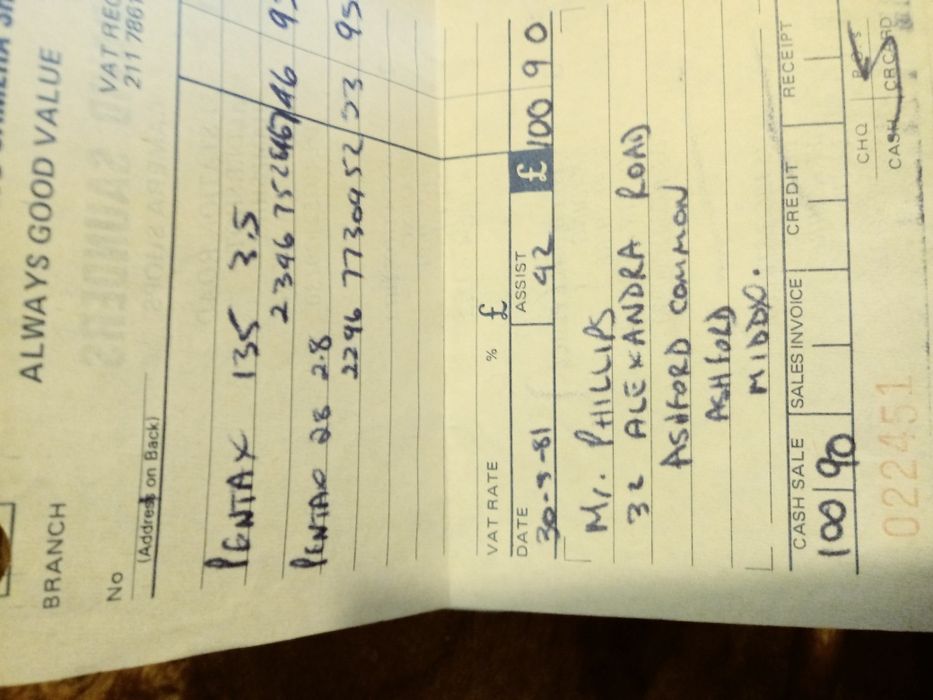 ALWAYS GOOD VALUE
BRANCH
VAT REG
211 7861
No
(Address on Back)
PENTAX 135 3.5
46 95
PENTAX 28 2.8
2296 7730452 53 95
VAT RATE % £
DATE ASSIST £
30-9-81 42 100 90
Mr. PHILLIPS
32 ALEXANDRA ROAD
ASHFORD COMMON
ASHFORD
MIDDX.
CASH SALE SALES INVOICE CREDIT RECEIPT
100 90
CHQ P.O.'s
CASH CRCARD
022451